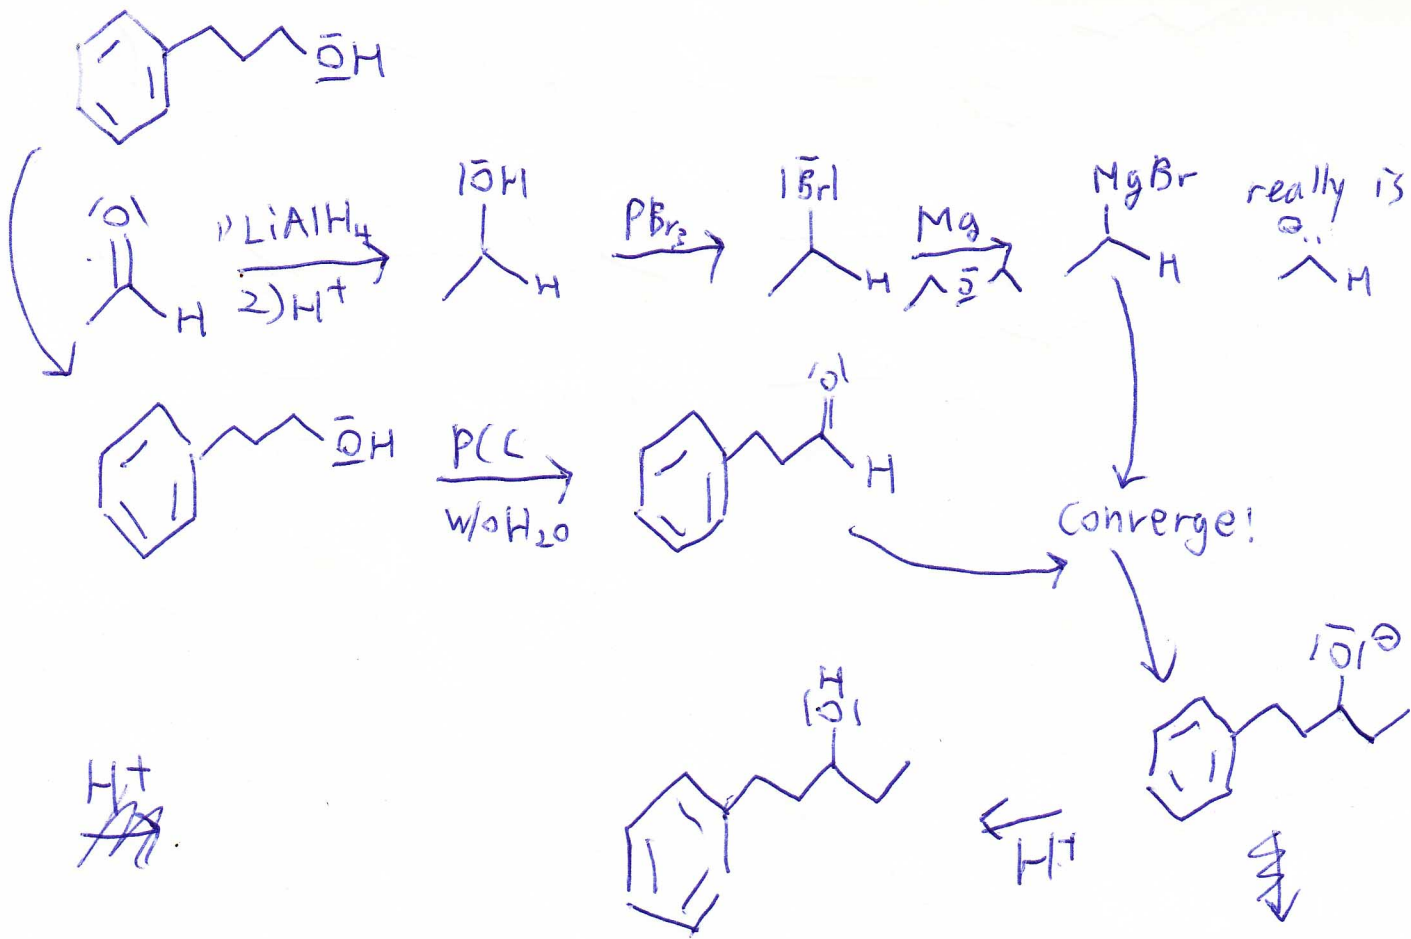 OH
O
H
1) LiAlH4
2) H+
OH
H
PBr3
Br
H
Mg
O
MgBr
H
really is
⊖..
H
OH
PCC
w/o H2O
O
H
Converge!
O⊖
H
O
H+
H+